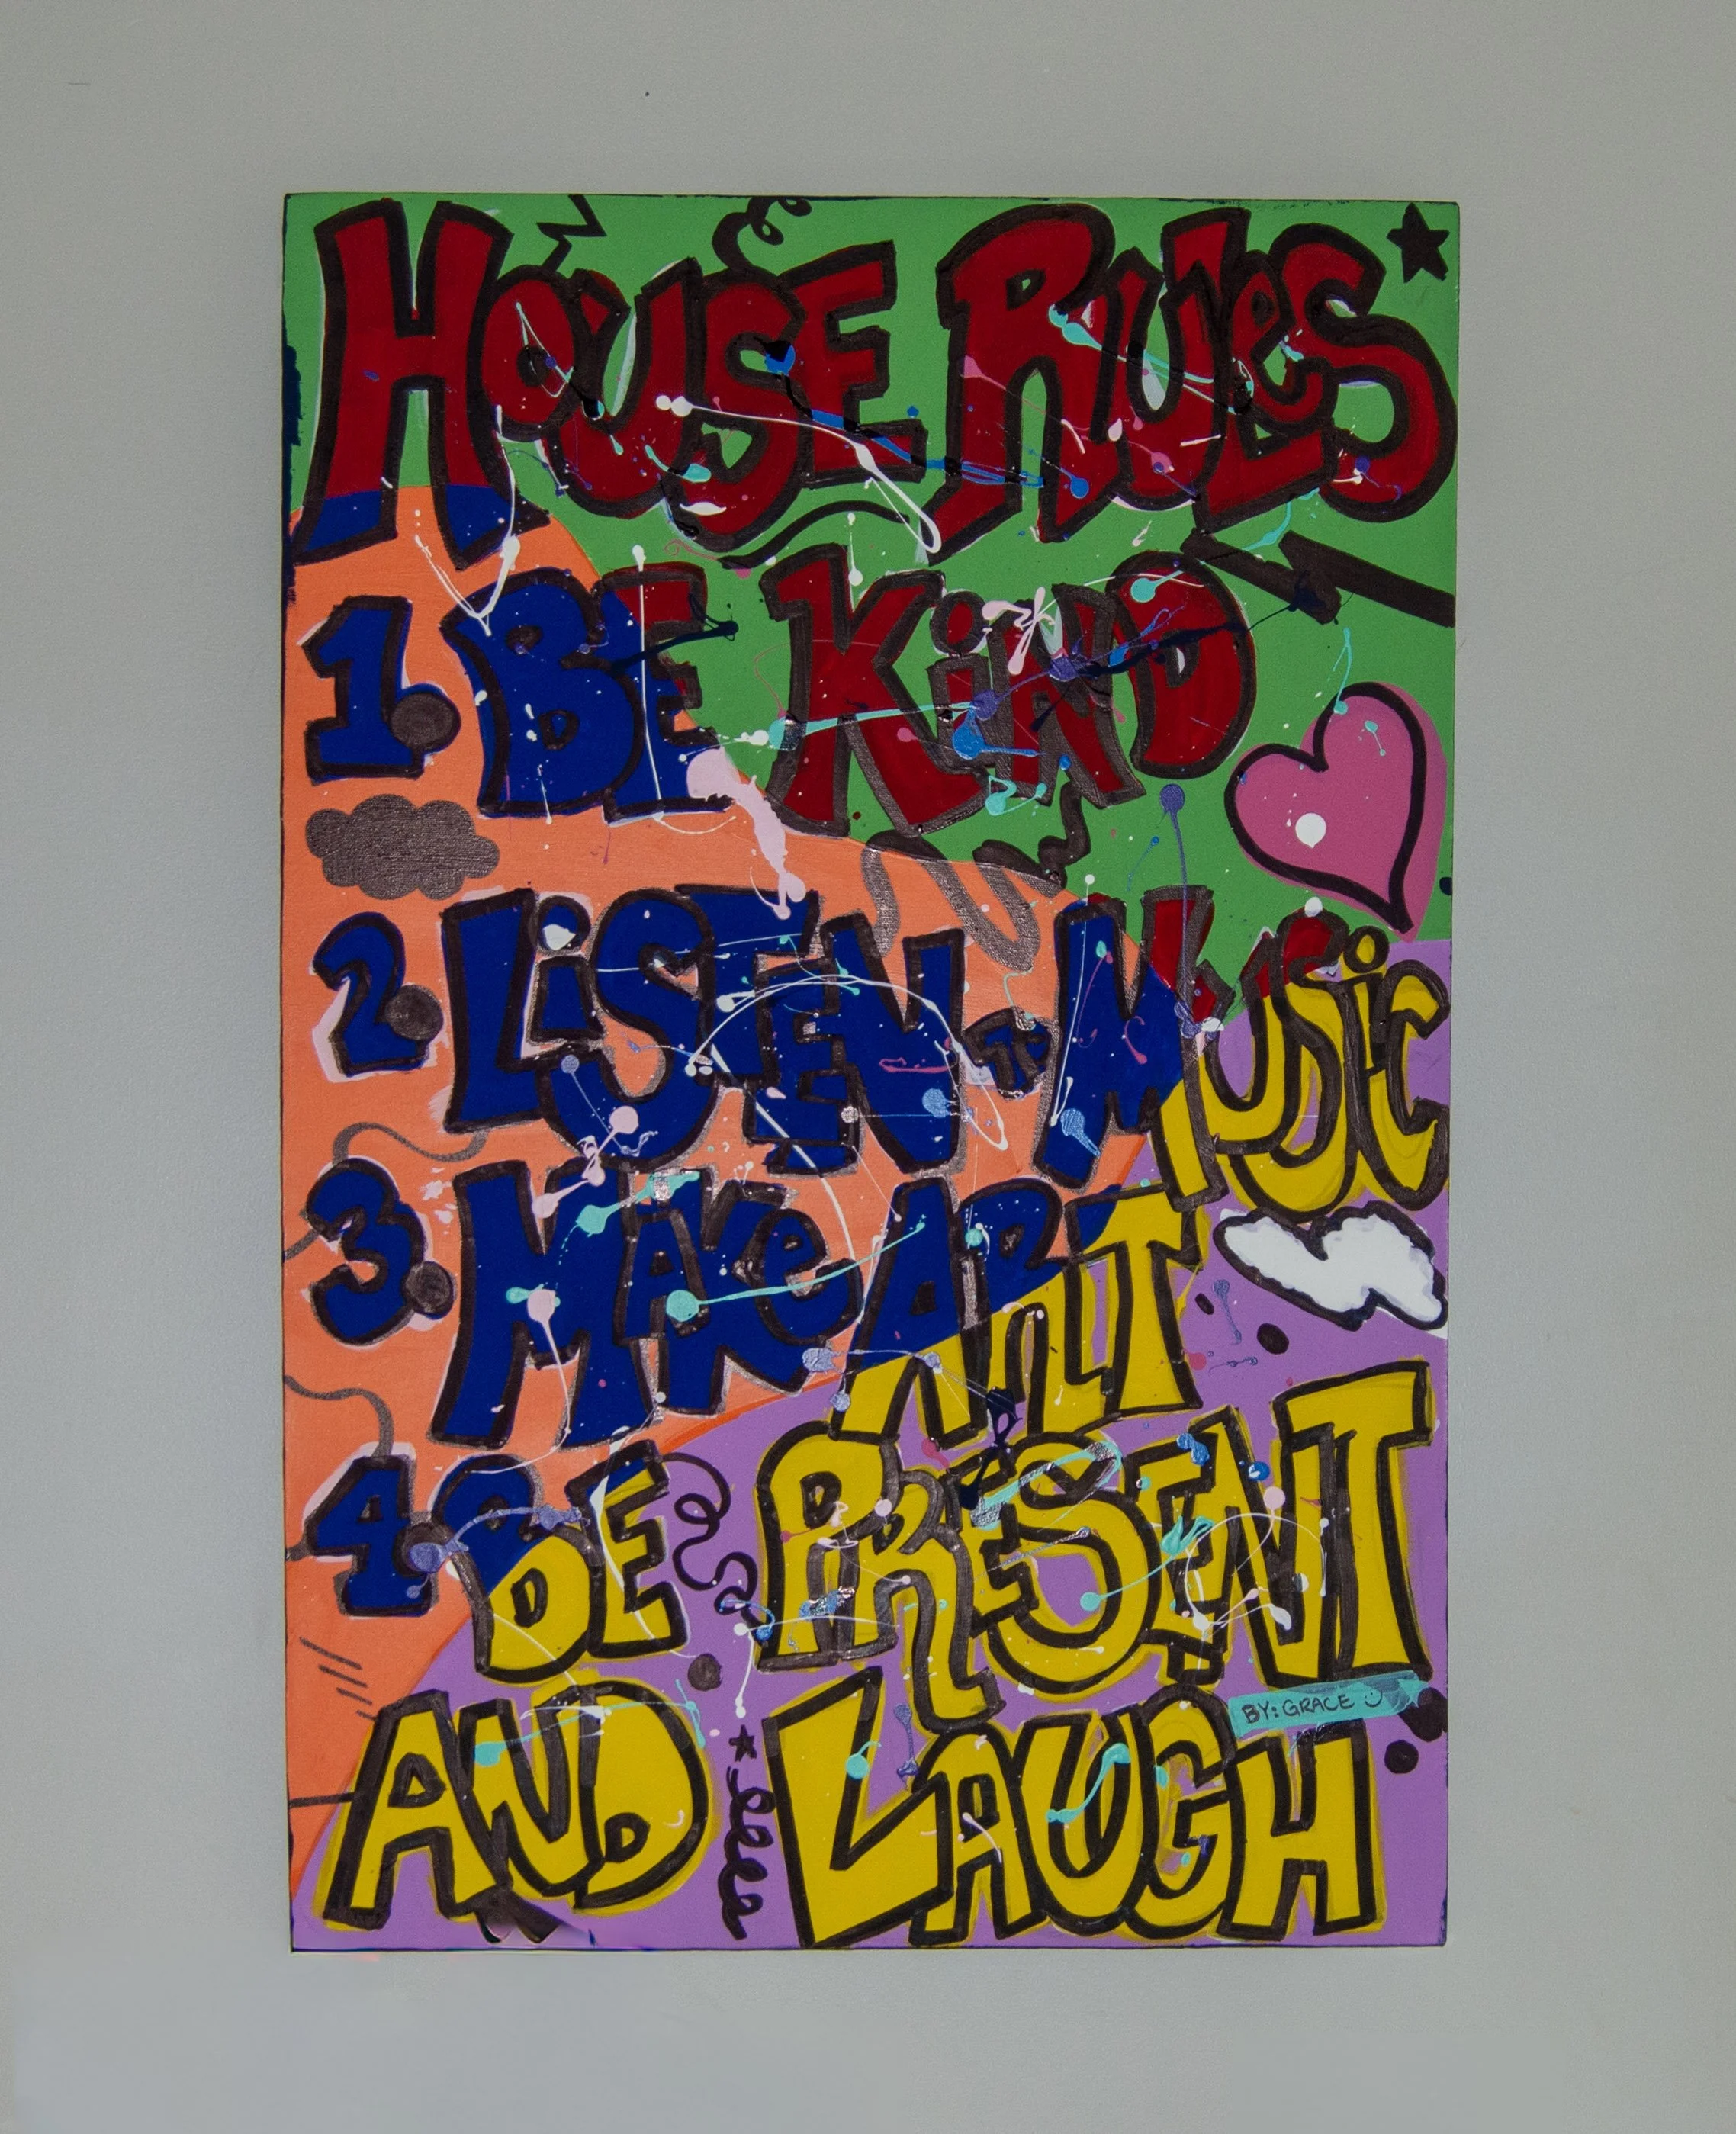 HOUSE RULES
1. BE KIND
2. LISTEN TO MUSIC
3. MAKE ART
4. BE PRESENT
AND LAUGH
BY: GRACE